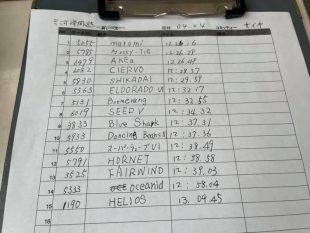 1 5255 masami 12 26 16
2 5785 Messy-Tie 12 26 28
3 1479 Akea 12 26 48
4 6082 CIERVO 12:28.37
5 5830 SHIKADAI 12:29.39
6 5563 ELDORADO VI 12:32.17
7 5131 Bumerang 12:32.55
8 6019 SEED V 12:34.32
9 3833 Blue Shark 12:37.31
10 3933 Dancing Beans II 12:37.36
11 5550 スーパーウェーブ VI 12:38.49
12 5791 HORNET 12:38.58
13 3525 FAIRWIND 12:39.03
14 5333 oceanid 12:58.04
15 1190 HELIOS 13.09.45